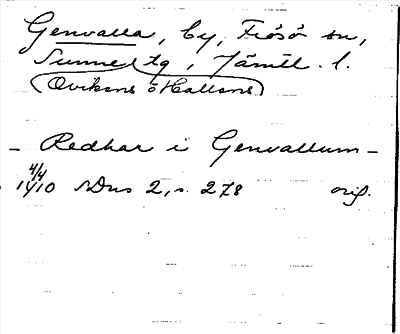 Genvalla, by, Frösö sn,
Sunne tg, Jämtl. l.
(Ovikens o Hallens)
- Redhar i Genvallum -
4/4
1410 NDns 2, s. 278 orig.